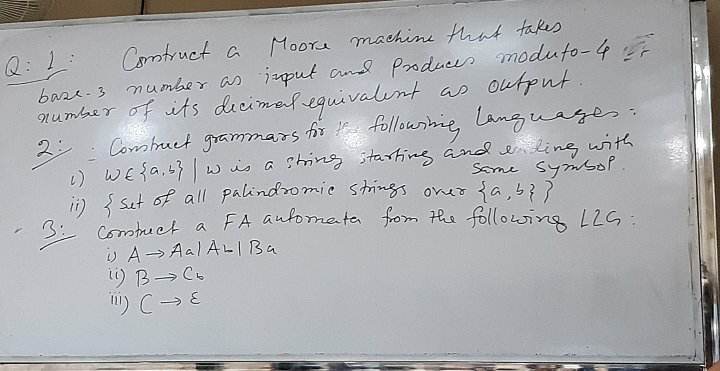 Q: 1: Construct a Moore machine that takes
base-3 number as input and Produces moduto-4
number of its decimal equivalent as output.
2: Construct grammars for the following Languages:
i) W∈{a,b} | W is a string starting and ending with
same symbol.
ii) { set of all palindromic strings over {a,b} }
3: Construct a FA automata from the following LLG:
i) A → Aa | Ab | Ba
ii) B → Cb
iii) C → ε